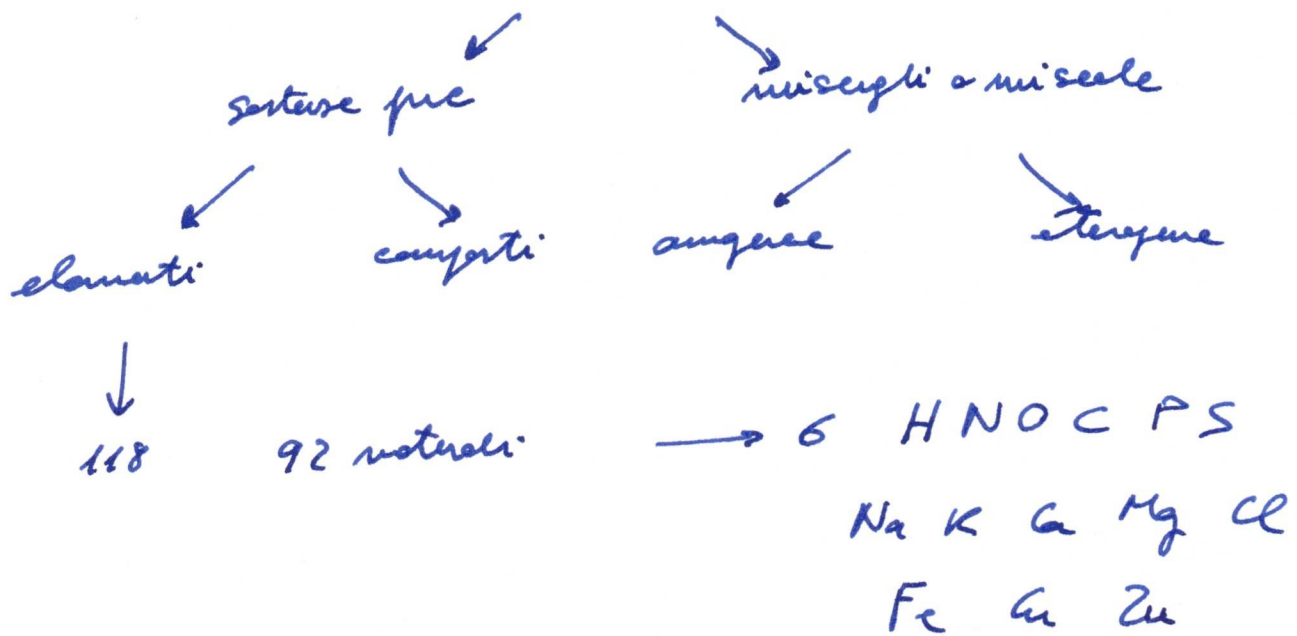 sostanze pure miscugli o miscele
elementi composti omogenee eterogenee
118 92 naturali 6 H N O C P S
Na K Ca Mg Cl
Fe Cu Zn